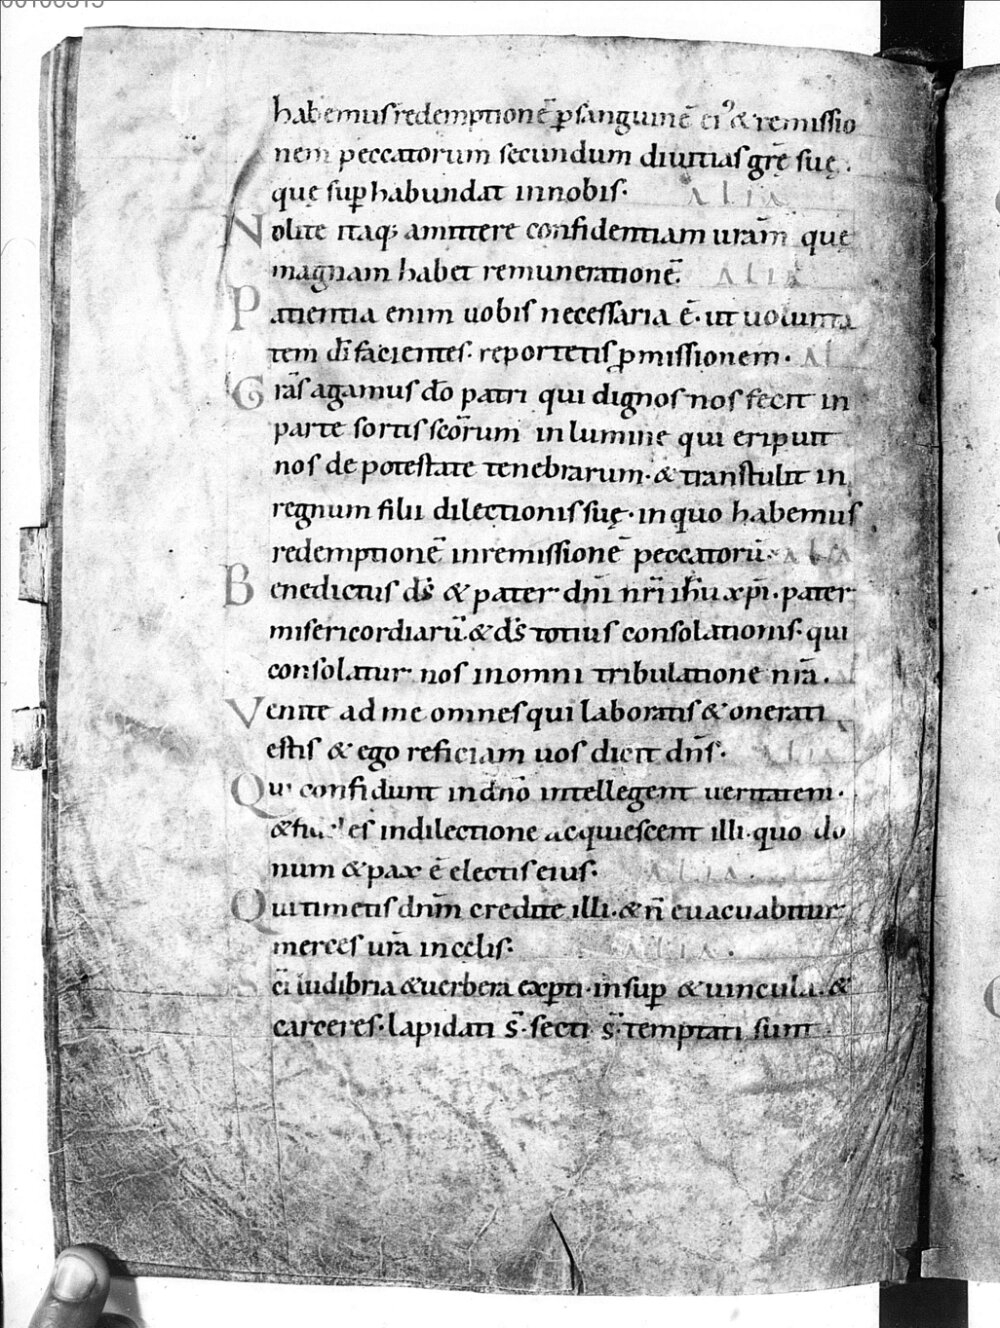 habemus redemptionē ꝑ sanguinē ei᾽ & remissio
nem peccatorum secundum diuitias grę̄ suę.
quę suꝑhabundat in nobis· ALIA
Nolite itaq; amittere confidentiam urām quę
magnam habet remunerationē· ALIA
Patientia enim uobis necessaria ē· ut uolunta
tem dī facientes· reportetis ꝓmissionem· AL
Grās agamus dō patri qui dignos nos fecit in
parte sortis scōrum in lumine qui eripuit
nos de potestate tenebrarum· & transtulit in
regnum filii dilectionis suę· in quo habemus
redemptionē in remissionē peccatorū· ALIA
Benedictus d̄s & pater dn̄i nr̄i ihū xp̄i· pater
misericordiarū· & d̄s totius consolationis· qui
consolatur nos in omni tribulatione nrā.
Venite ad me omnes qui laboratis & onerati
estis & ego reficiam uos dicit dn̄s· ALIA
Qui confidunt in dn̄o intellegent ueritatem·
& in dilectione adquiescent illi· quō do
num & pax ē electis eius· ALIA·
Qui timetis dn̄m credite illi· & n̄ euacuabitur
merces urā in celis· ALIA·
Scī ludibria & uerbera exꝑti· insuꝑ & uincula· &
carceres· lapidati s̄· secti s̄· temptati sunt